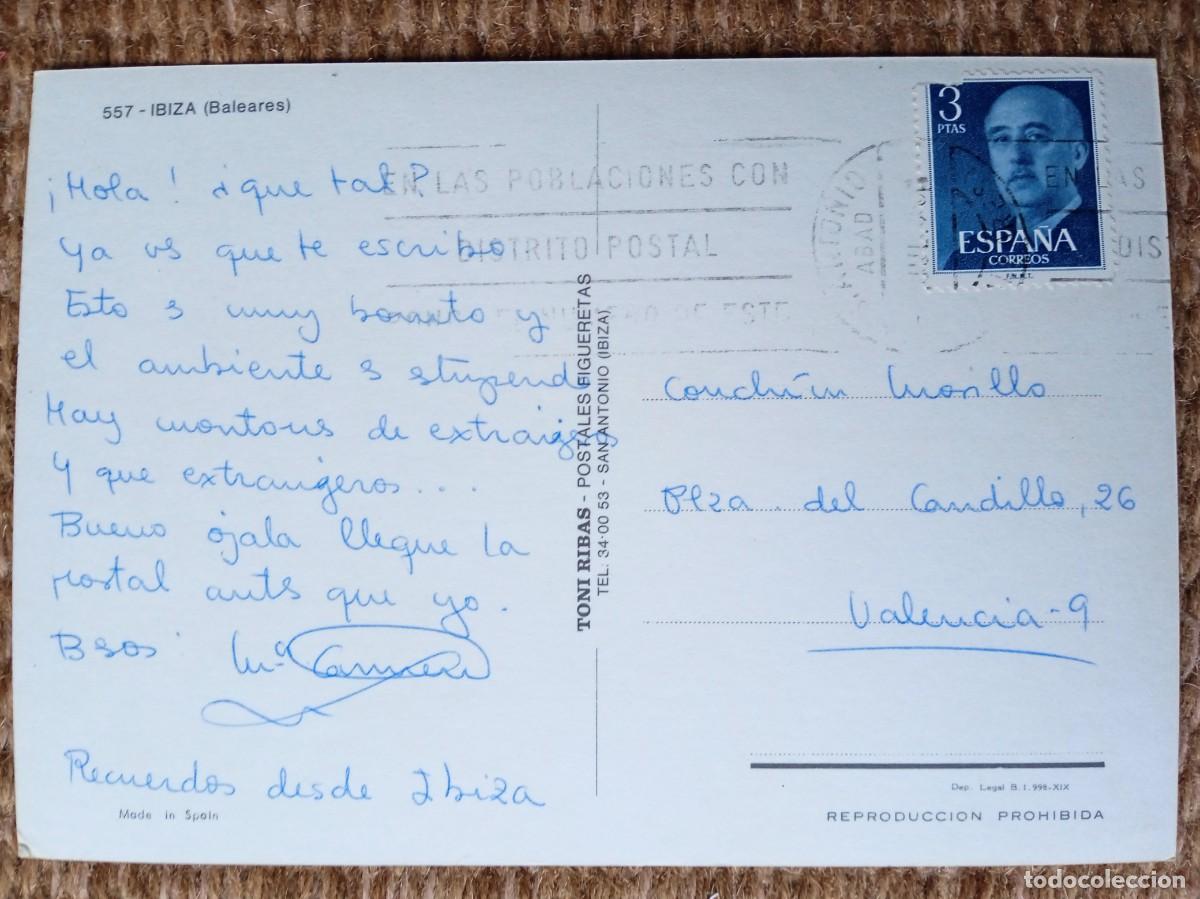 557 - IBIZA (Baleares)
¡Hola! ¿que tal?
Ya vs que te escribo
Esto s muy bonito y
el ambiente s stupendo
Hay montons de extraigeros
Y que extrangeros...
Bueno ojala llegue la
postal ants que yo.
Bsos Mª Carmen
Recuerdos desde Ibiza
Made in Spain
TONI RIBAS - POSTALES FIGUERETAS
TEL. 34-00 53 - SAN ANTONIO (IBIZA)
EN LAS POBLACIONES CON
DISTRITO POSTAL
NUMERO DE ESTE
ANTONIO
ABAD
EN LAS
DIST
3
PTAS
ESPAÑA
CORREOS
F.N.M.T.
Conchín Morillo
Plza. del Caudillo, 26
Valencia-9
Dep. Legal B. 1.998-XIX
REPRODUCCION PROHIBIDA
todocoleccion